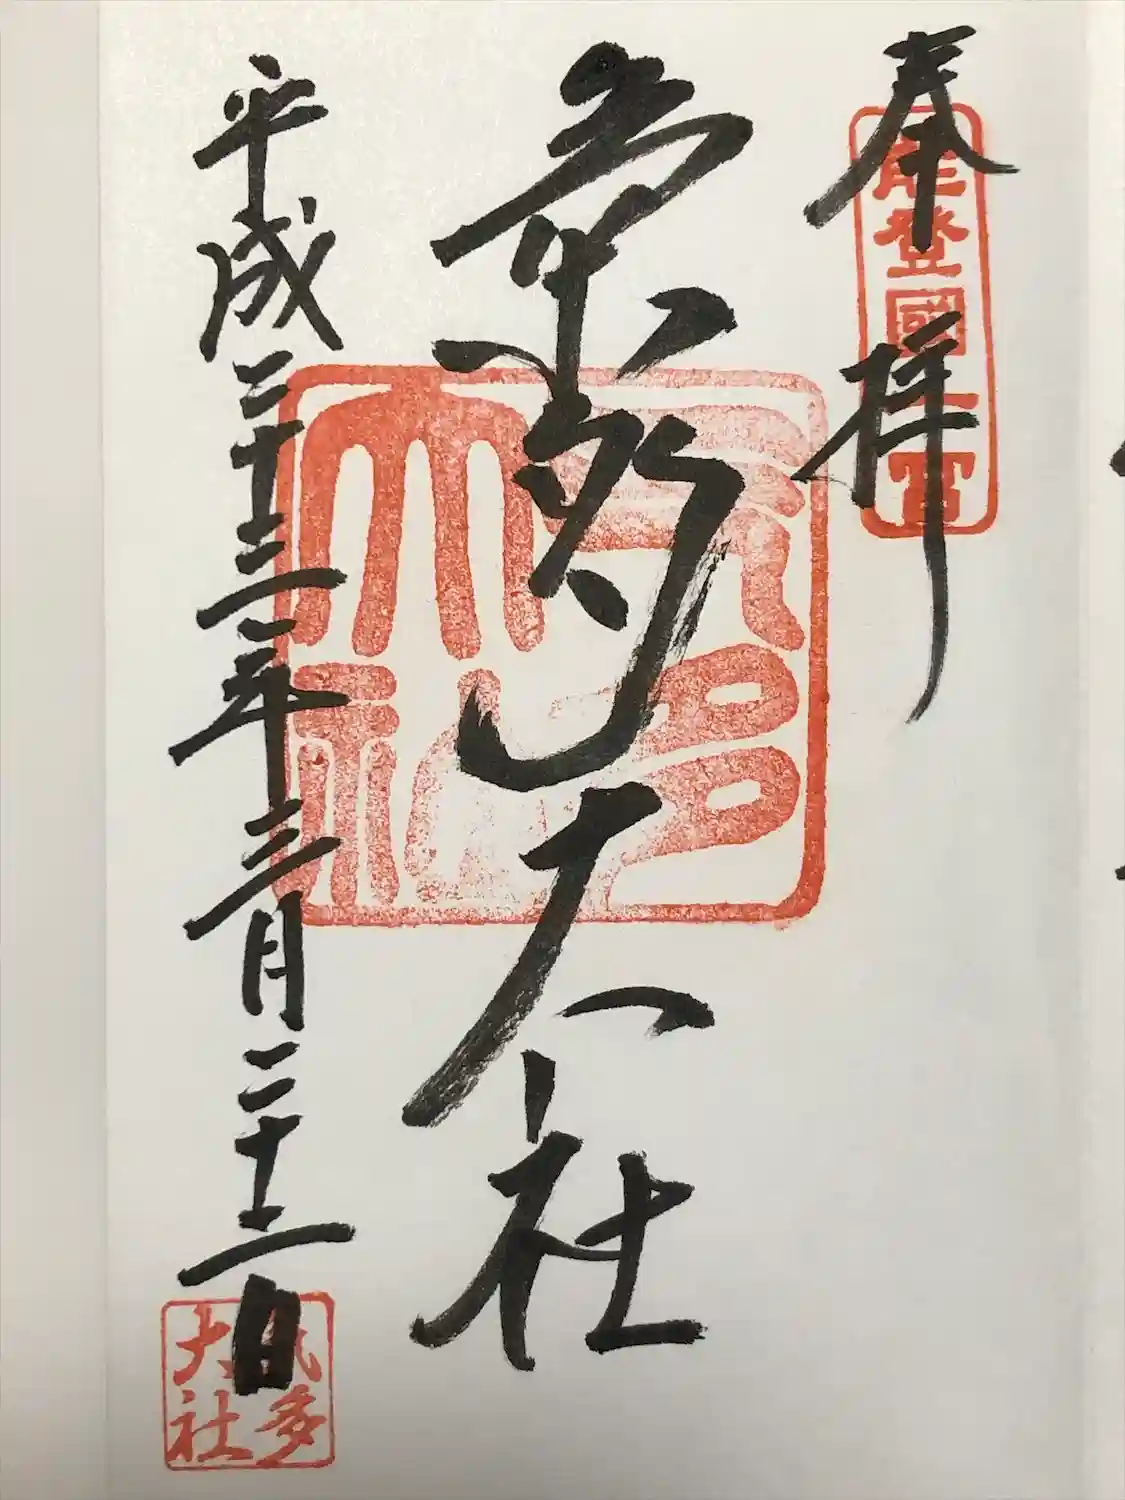 奉拝
能登國一宮
氣多大社
氣多大社
平成二十三年三月二十一日
氣多大社